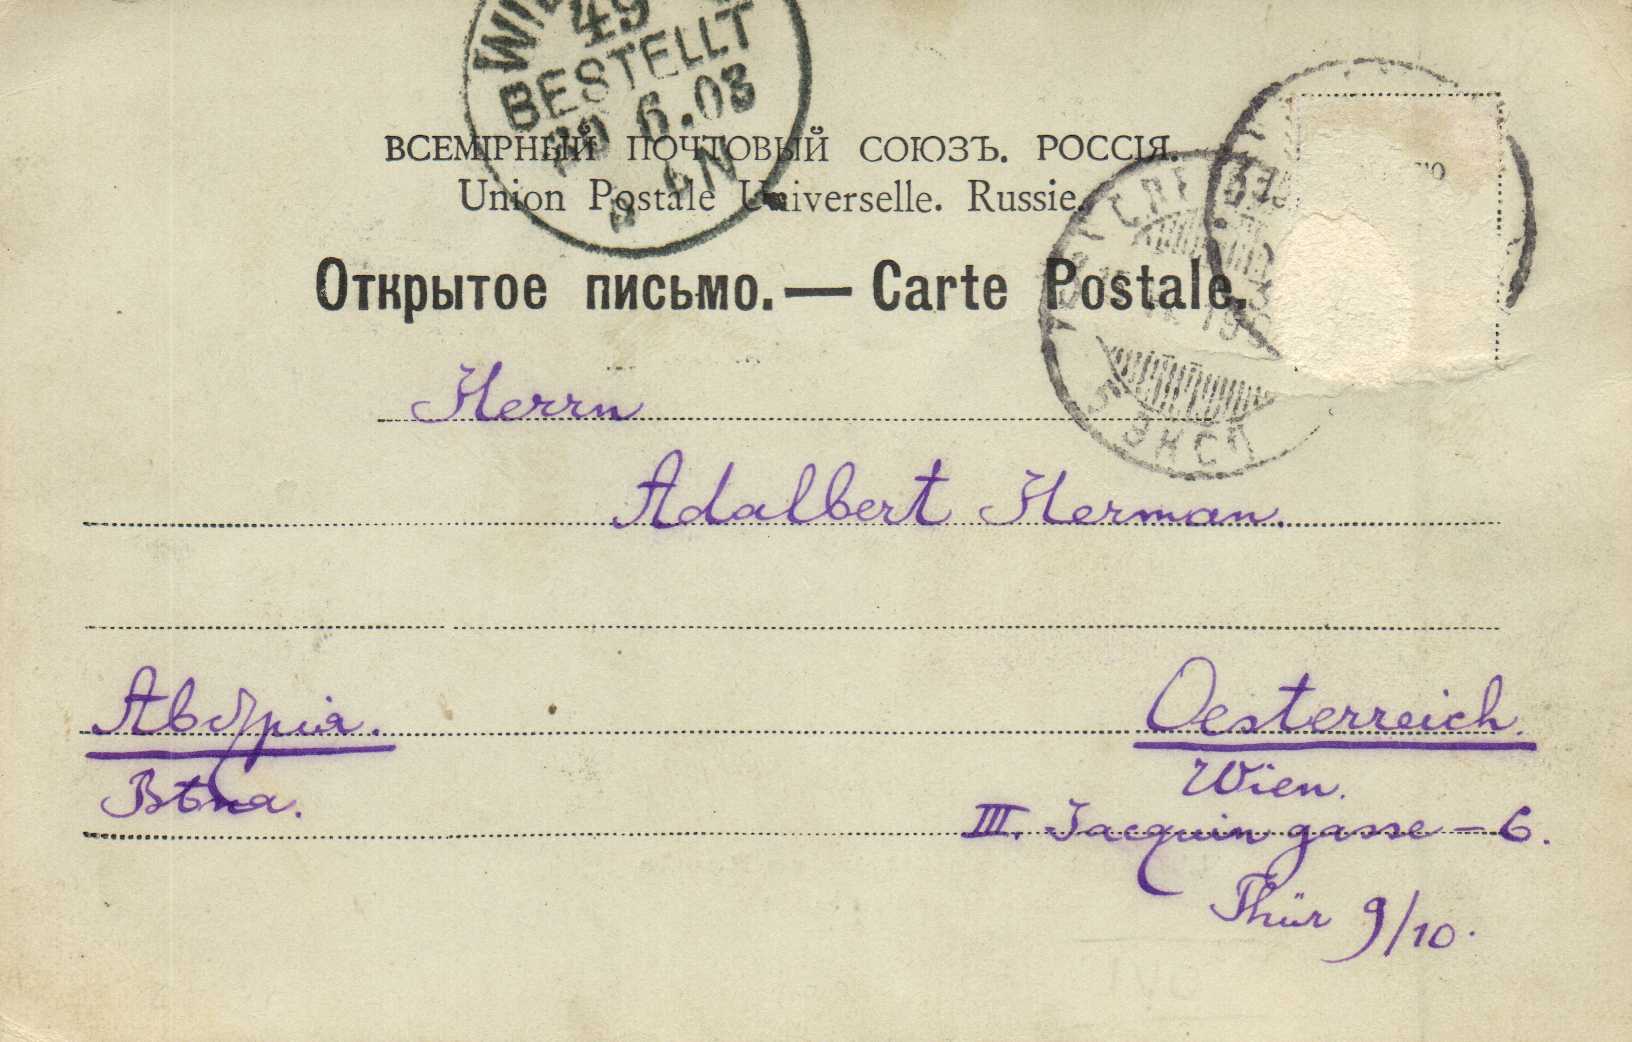 49
BESTELLT
6.03
ВСЕМІРНЫЙ ПОЧТОВЫЙ СОЮЗЪ. РОССІЯ.
Union Postale Universelle. Russie.
Открытое письмо. — Carte Postale.
5 ЭКСП
Herrn
Adalbert Herman.
Австрія.
Вѣна.
Oesterreich.
Wien.
III. Jacquingasse - 6.
Thür 9/10.